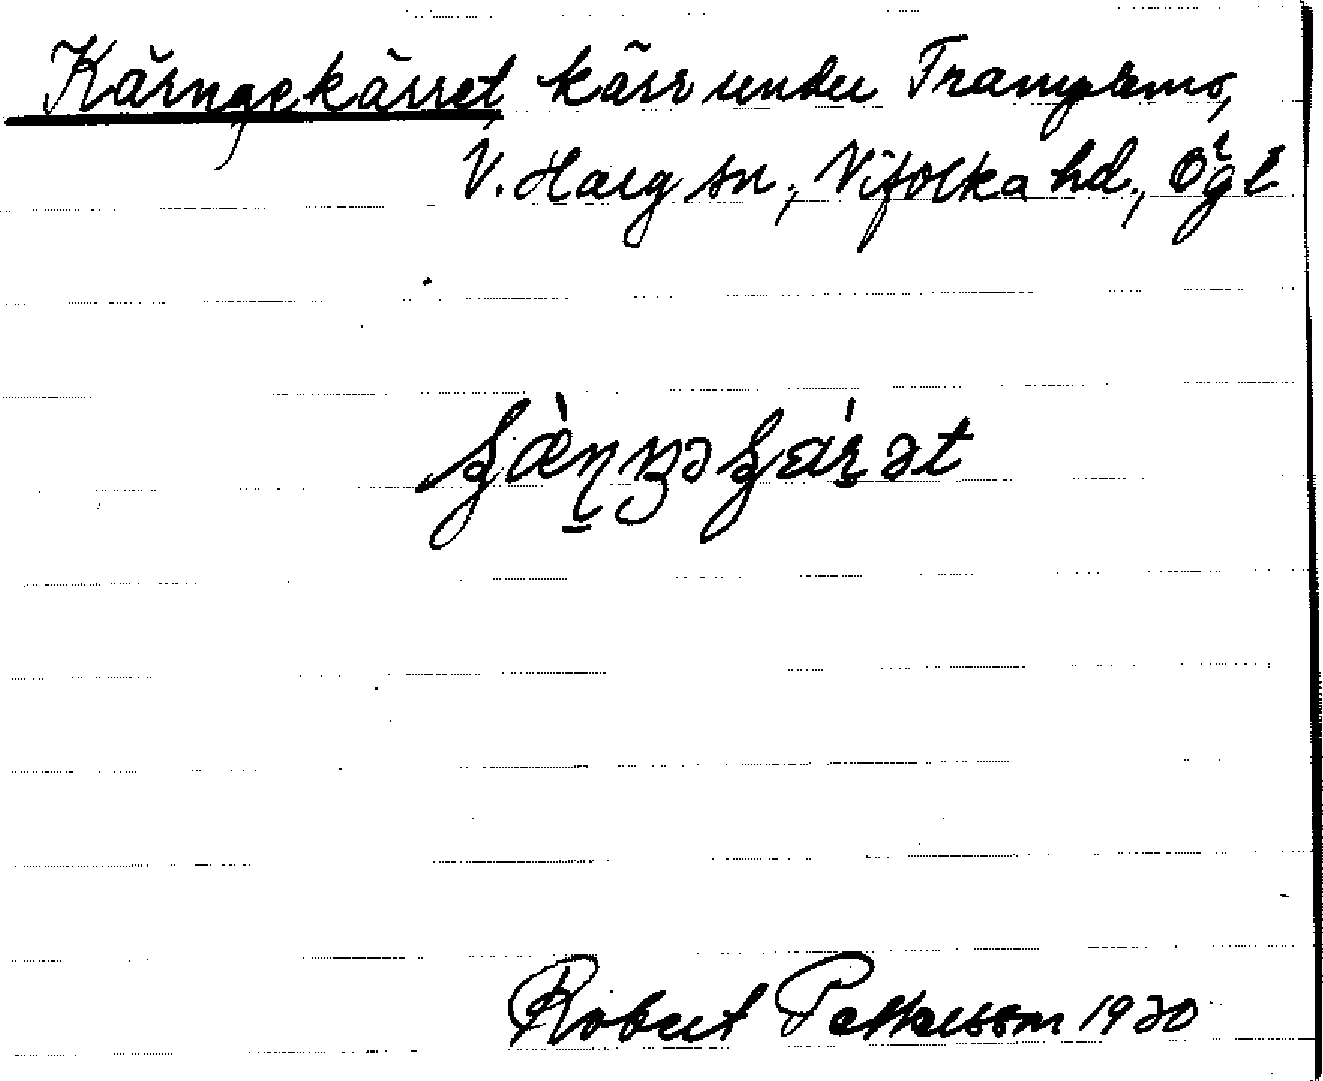 Kärngekärret kärr under Trampemo,
V. Harg sn, Vifolka hd, Ögl
Robert Pettersson 1930